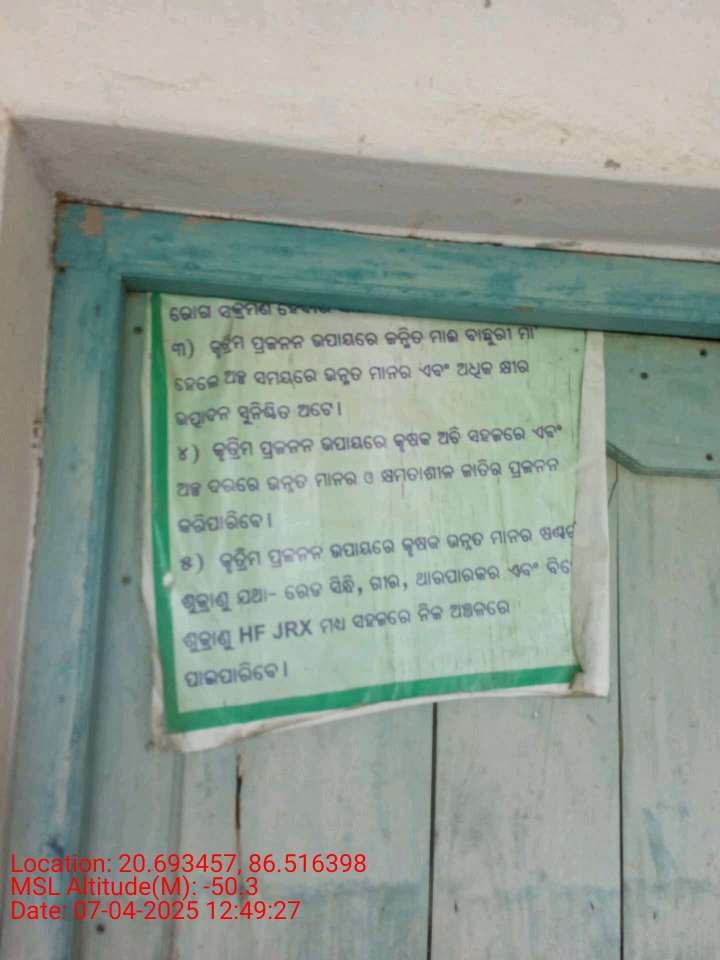 ରୋଗ ସଂକ୍ରମଣ
୩) କୃତ୍ରିମ ପ୍ରଜନନ ଉପାୟରେ ଜନ୍ମିତ ମାଈ ବାଛୁରୀ ମା'
ହେଲେ ଅଳ୍ପ ସମୟରେ ଉନ୍ନତ ମାନର ଏବଂ ଅଧିକ କ୍ଷୀର
ଉତ୍ପାଦନ ସୁନିଶ୍ଚିତ ଅଟେ।
୪) କୃତ୍ରିମ ପ୍ରଜନନ ଉପାୟରେ କୃଷକ ଅତି ସହଜରେ ଏବଂ
ଅଳ୍ପ ଦରରେ ଉନ୍ନତ ମାନର ଓ କ୍ଷମତାଶୀଳ ଜାତିର ପ୍ରଜନନ
କରିପାରିବେ।
୫) କୃତ୍ରିମ ପ୍ରଜନନ ଉପାୟରେ କୃଷକ ଉନ୍ନତ ମାନର
ଶୁକ୍ରାଣୁ ଯଥା- ରେଡ ସିନ୍ଧି, ଗୀର, ଥାରପାରକର ଏବଂ
ଶୁକ୍ରାଣୁ HF JRX ମଧ୍ୟ ସହଜରେ ନିଜ ଅଞ୍ଚଳରେ
ପାଇପାରିବେ।
Location: 20.693457, 86.516398
MSL Altitude(M): -50.3
Date: 07-04-2025 12:49:27